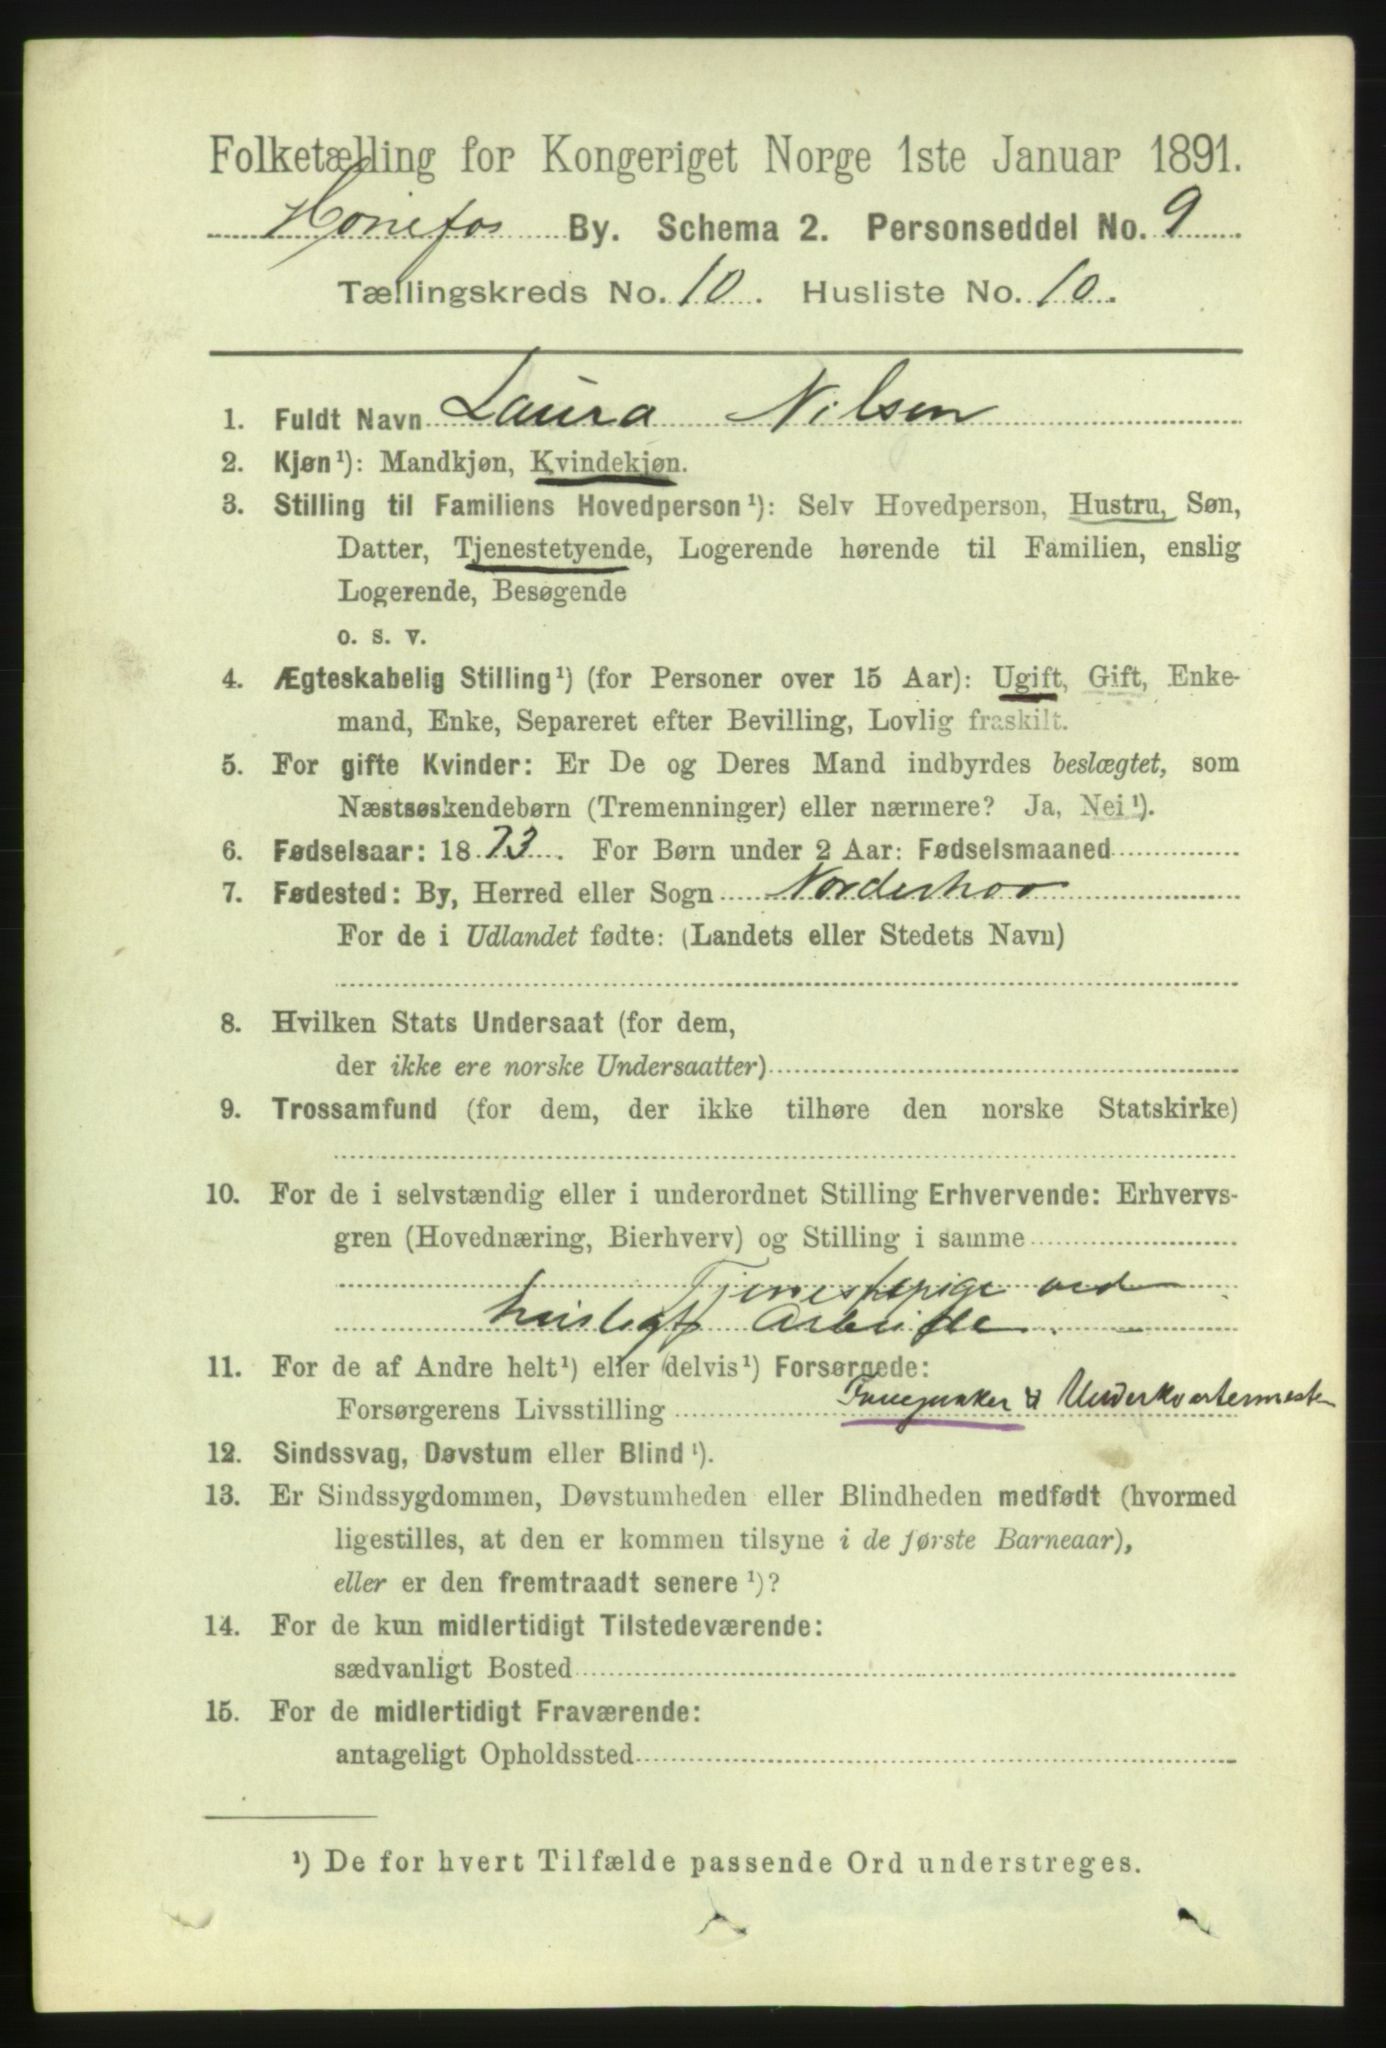 Folketælling for Kongeriget Norge 1ste Januar 1891.
Hønefos By. Schema 2. Personseddel No. 9
Tællingskreds No. 10. Husliste No. 10.
1. Fuldt Navn Laura Nilsen
2. Kjøn¹): Mandkjøn, Kvindekjøn.
3. Stilling til Familiens Hovedperson¹): Selv Hovedperson, Hustru, Søn,
Datter, Tjenestetyende, Logerende hørende til Familien, enslig
Logerende, Besøgende
o. s. v.
4. Ægteskabelig Stilling¹) (for Personer over 15 Aar): Ugift, Gift, Enke-
mand, Enke, Separeret efter Bevilling, Lovlig fraskilt.
5. For gifte Kvinder: Er De og Deres Mand indbyrdes beslægtet, som
Næstsøskendebørn (Tremenninger) eller nærmere? Ja, Nei¹).
6. Fødselsaar: 1873. For Børn under 2 Aar: Fødselsmaaned
7. Fødested: By, Herred eller Sogn Norderhov
For de i Udlandet fødte: (Landets eller Stedets Navn)
8. Hvilken Stats Undersaat (for dem,
der ikke ere norske Undersaatter)
9. Trossamfund (for dem, der ikke tilhøre den norske Statskirke)
10. For de i selvstændig eller i underordnet Stilling Erhvervende: Erhvervs-
gren (Hovednæring, Bierhverv) og Stilling i samme
Tjenestepige ved
husligt Arbeide.
11. For de af Andre helt¹) eller delvis¹) Forsørgede:
Forsørgerens Livsstilling Fanejunker & Underkvartermest
12. Sindssvag, Døvstum eller Blind¹).
13. Er Sindssygdommen, Døvstumheden eller Blindheden medfødt (hvormed
ligestilles, at den er kommen tilsyne i de første Barneaar),
eller er den fremtraadt senere¹)?
14. For de kun midlertidigt Tilstedeværende:
sædvanligt Bosted
15. For de midlertidigt Fraværende:
antageligt Opholdssted
¹) De for hvert Tilfælde passende Ord understreges.